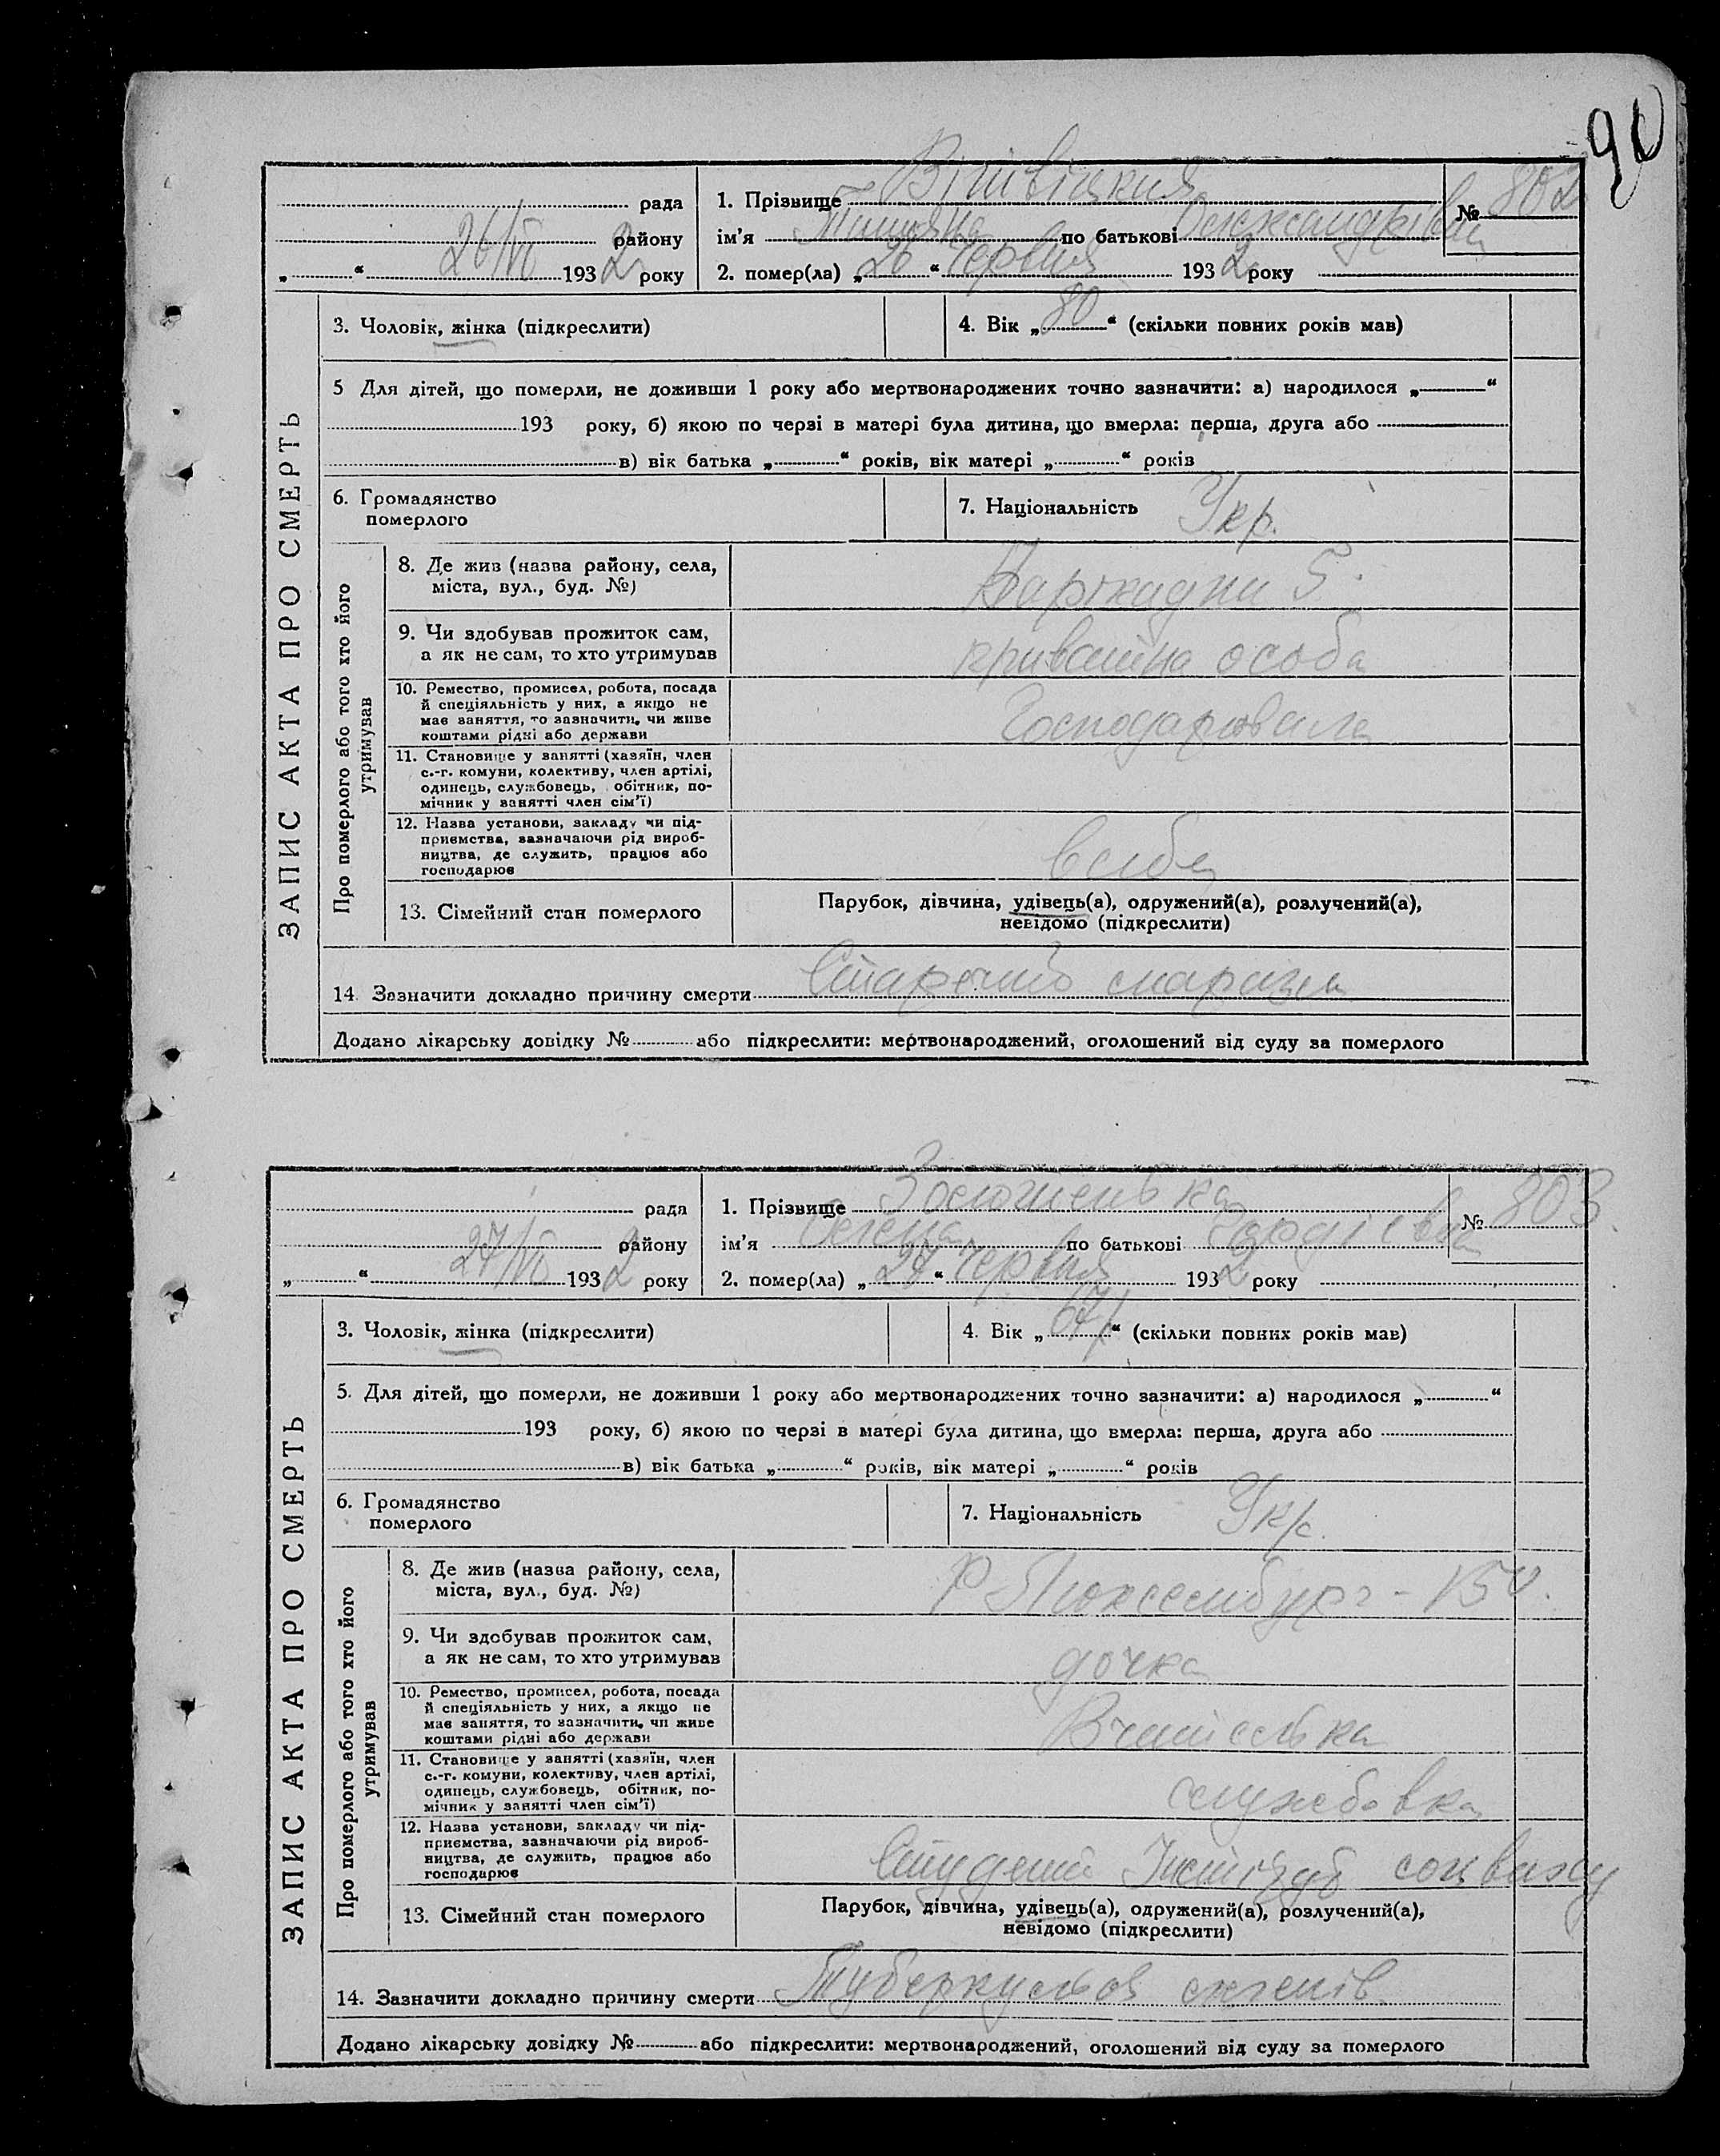 90
рада
1. Прізвище
№ 802
району
ім'я Татьяна по батькові Олександрівна
26/VI 1932 року
2. помер(ла) „26“ Червня 1932 року
3. Чоловік, жінка (підкреслити)
4. Вік „80“ (скільки повних років мав)
5 Для дітей, що померли, не доживши 1 року або мертвонароджених точно зазначити: а) народилося „ “
193 року, б) якою по черзі в матері була дитина, що вмерла: перша, друга або
в) вік батька „ “ років, вік матері „ “ років
6. Громадянство
померлого
7. Національність Укр.
ЗАПИС АКТА ПРО СМЕРТЬ
Про померлого або того хто його
утримував
8. Де жив (назва району, села,
міста, вул., буд. №) 5.
9. Чи здобував прожиток сам,
а як не сам, то хто утримував
приватна особа
10. Ремество, промисел, робота, посада
й спеціяльність у них, а якщо не
має заняття, то зазначити, чи живе
коштами рідні або держави
Господарювала
11. Становище у занятті (хазяїн, член
с.-г. комуни, колективу, член артілі,
одинець, службовець, обітник, по-
мічник у занятті член сім'ї)
12. Назва установи, закладу чи під-
приємства, зазначаючи рід вироб-
ництва, де служить, працює або
господарює
13. Сімейний стан померлого
Парубок, дівчина, удівець(а), одружений(а), розлучений(а),
невідомо (підкреслити)
14. Зазначити докладно причину смерти Старечий маразм
Додано лікарську довідку № або підкреслити: мертвонароджений, оголошений від суду за померлого
рада
1. Прізвище
№ 803.
району
ім'я Олена по батькові Гордіївна
27/VI 1932 року
2. помер(ла) „27“ Червня 1932 року
3. Чоловік, жінка (підкреслити)
4. Вік „67“ (скільки повних років мав)
5. Для дітей, що померли, не доживши 1 року або мертвонароджених точно зазначити: а) народилося „ “
193 року, б) якою по черзі в матері була дитина, що вмерла: перша, друга або
в) вік батька „ “ років, вік матері „ “ років
6. Громадянство
померлого
7. Національність Укр.
ЗАПИС АКТА ПРО СМЕРТЬ
Про померлого або того хто його
утримував
8. Де жив (назва району, села,
міста, вул., буд. №)
Р Люксембург -
9. Чи здобував прожиток сам,
а як не сам, то хто утримував
дочка
10. Ремество, промисел, робота, посада
й спеціяльність у них, а якщо не
має заняття, то зазначити, чи живе
коштами рідні або держави
Вчителька
11. Становище у занятті (хазяїн, член
с.-г. комуни, колективу, член артілі,
одинець, службовець, обітник, по-
мічник у занятті член сім'ї)
службовка
12. Назва установи, закладу чи під-
приємства, зазначаючи рід вироб-
ництва, де служить, працює або
господарює
13. Сімейний стан померлого
Парубок, дівчина, удівець(а), одружений(а), розлучений(а),
невідомо (підкреслити)
14. Зазначити докладно причину смерти Туберкульоз легенів.
Додано лікарську довідку № або підкреслити: мертвонароджений, оголошений від суду за померлого